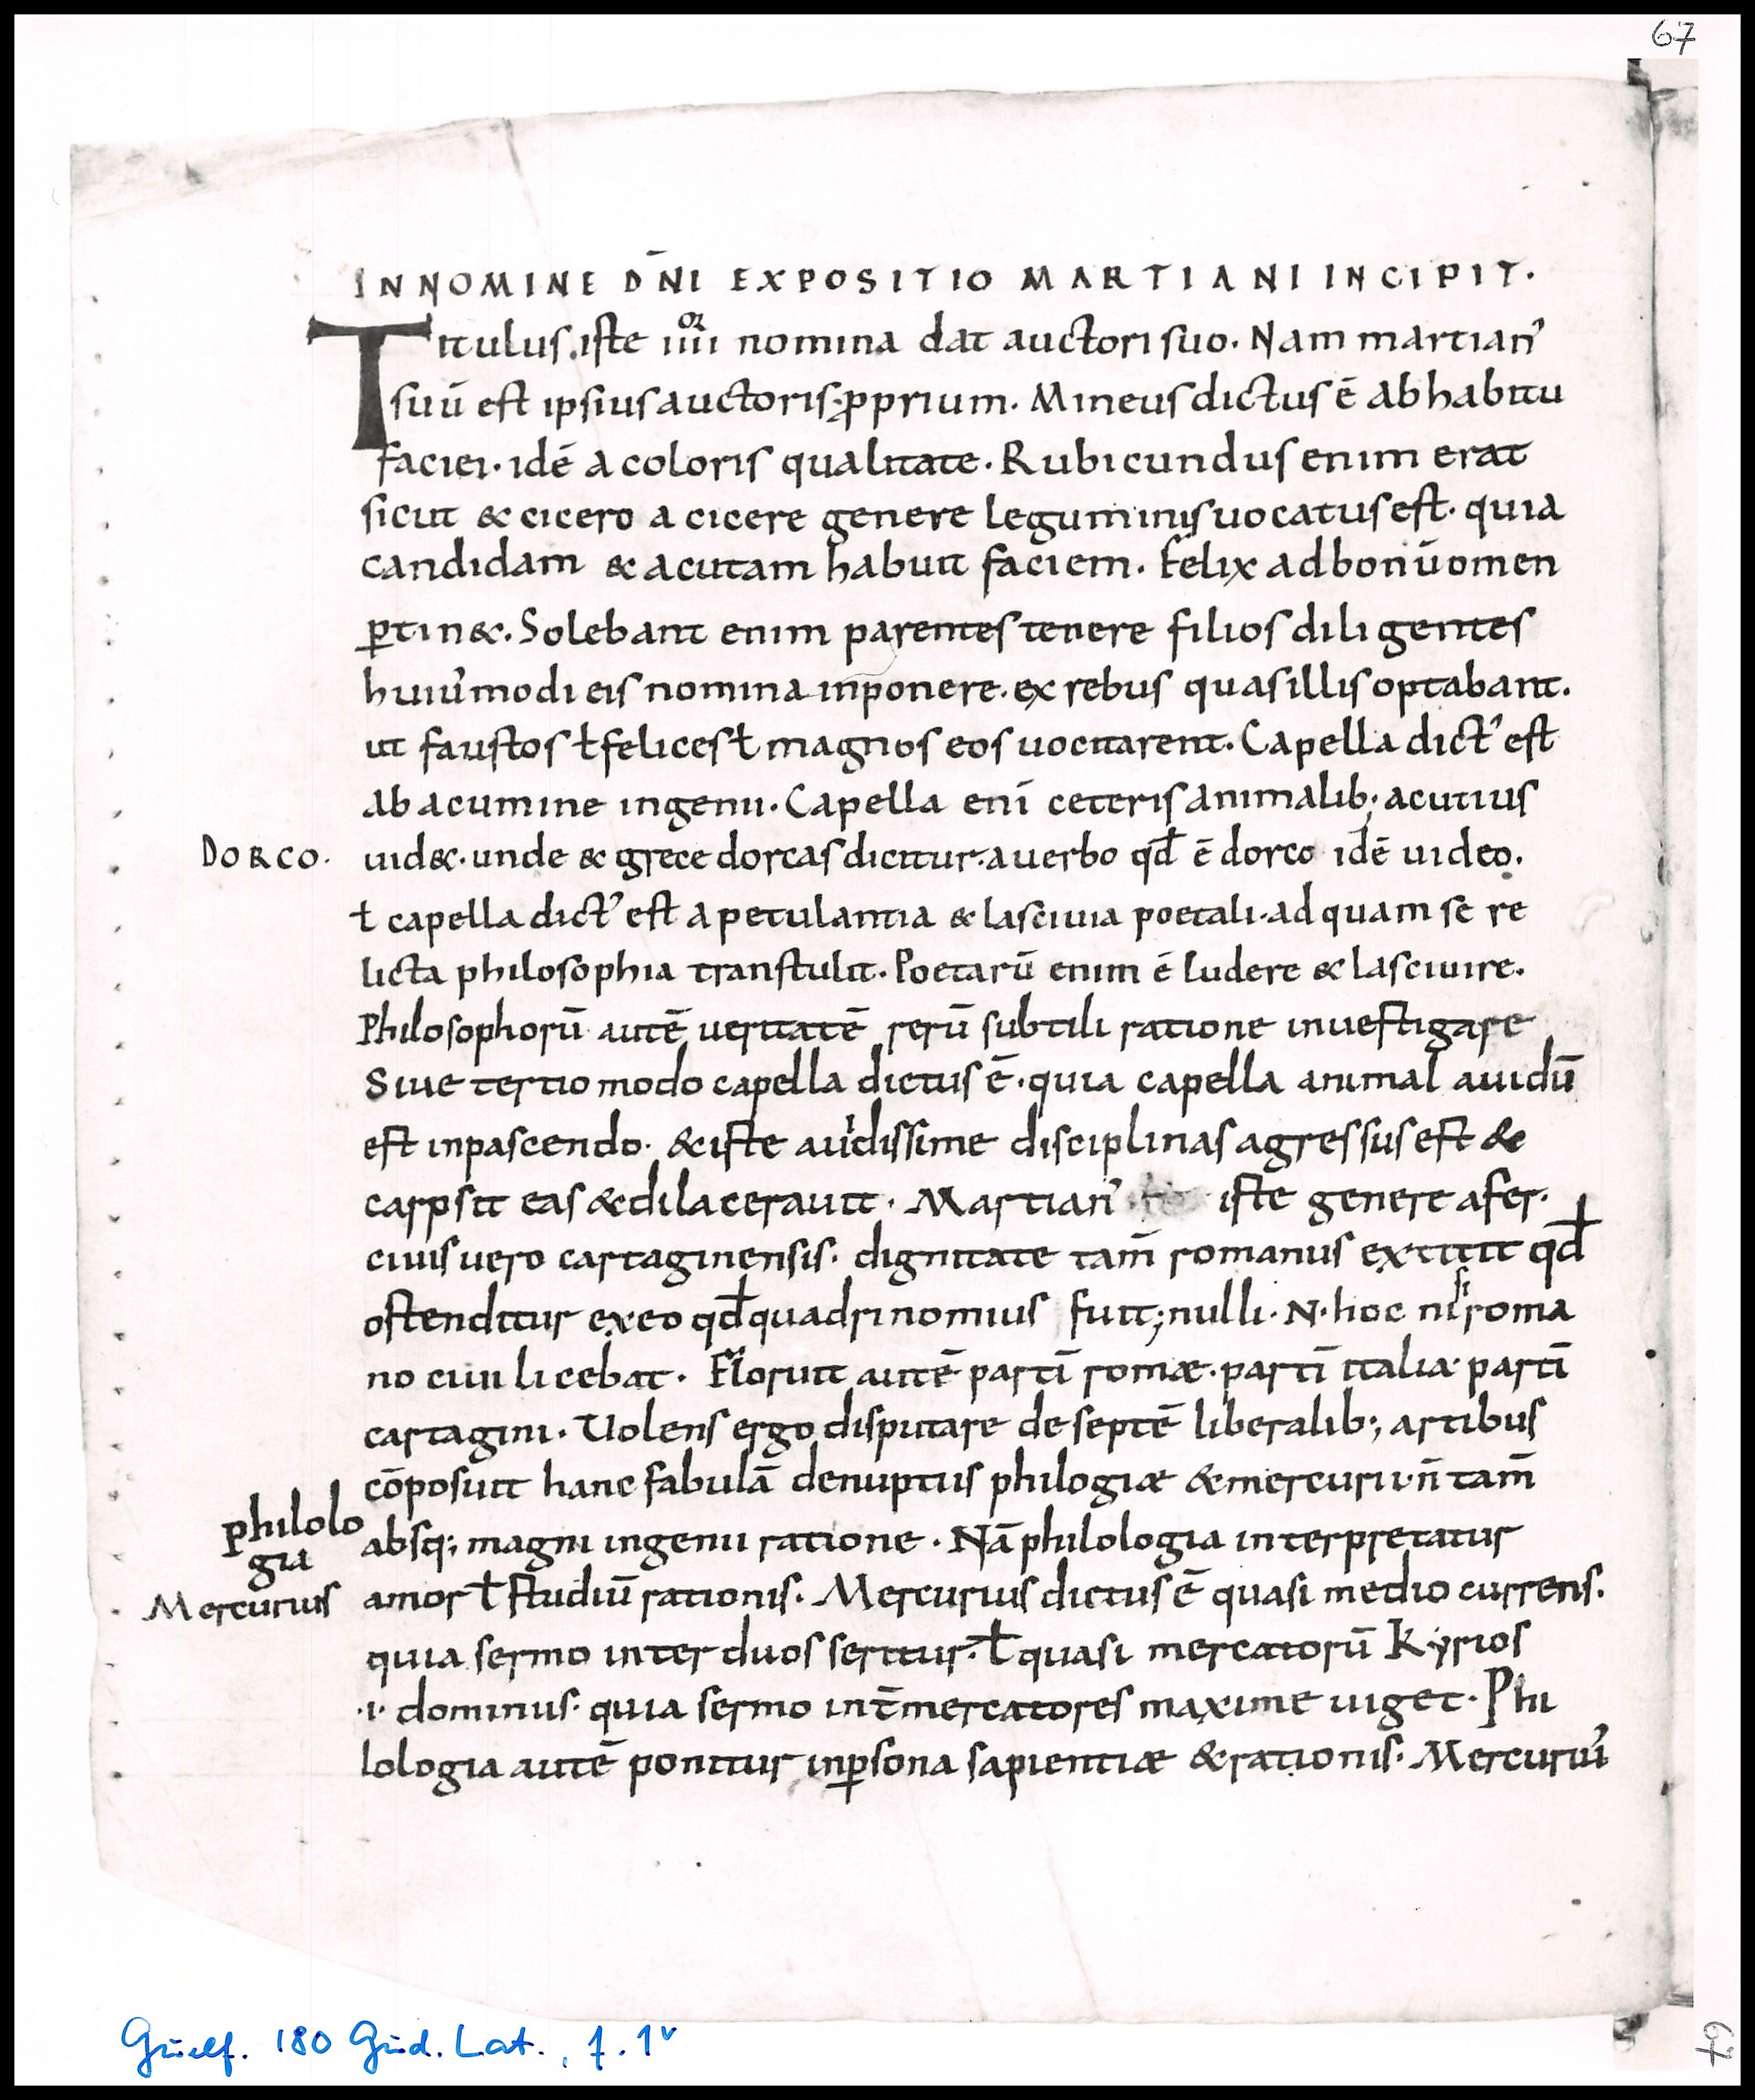 67
INNOMINE DN̄I EXPOSITIO MARTIANI INCIPIT.
Titulus. iste iiiior nomina dat auctori suo. Nam martian᾽
suū est ipsius auctoris ꝓprium. Mineus dictus ē ab habitu
faciei. idē a coloris qualitate. Rubicundus enim erat
sicut & cicero a cicere genere leguminis uocatus est. quia
candidam & acutam habuit faciem. Felix ad bonū omen
ꝑtin&. Solebant enim parentes tenere filios diligentes
huiu᾽modi eis nomina inponere. ex rebus quas illis optabant.
ut faustos ł felices ł magnos eos uocitarent. Capella dict᾽ est
ab acumine ingenii. Capella eni̅ ceteris animalib; acutius
DORCO. uid&. unde & grece dorcas dicitur. a uerbo qđ ē dorco idē uideo.
ł capella dict᾽ est a petulantia & lasciuia poetali. ad quam se re
licta philosophia transtulit. Poetarū enim ē ludere & lasciuire.
Philosophorū autē ueritatē rerū subtili ratione inuestigare
Siue tertio modo capella dictus ē. quia capella animal auidū
est in pascendo. & iste auidissime disciplinas agressus est &
carpsit eas & dilacerauit. Martian᾽ iste genere afer.
ciuis uero cartaginensis. dignitate tam̄ romanus extitit qđ
ostenditur ex eo qđ quadrinomius fuit; nulli. N. hoc nisi roma
no ciui licebat. Floruit autē parti̅ romæ. parti̅ italia parti̅
cartagini. Uolens ergo disputare de septē liberalib; artibus
cōposuit hanc fabulā de nuptiis philogiæ & mercurii. n̄ tam̄
philolo
gia
absq; magni ingenii ratione. Nā philologia interpretatur
Mercurius amor ł studiū rationis. Mercurius dictus ē quasi medio currens.
quia sermo inter duos seritur. ł quasi mercatorū Kyrios
.i. dominus. quia sermo int̄ mercatores maxime uiget. Phi
lologia autē ponitur in ꝑsona sapientiæ & rationis. Mercuriu᾽
Guelf. 180 Gud. Lat., f. 1v
67